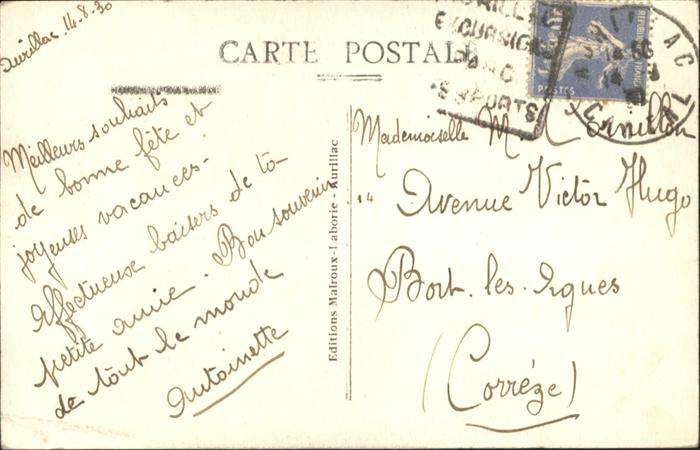 Aurillac. 14-8-30
CARTE POSTALE
AURILLAC
EXCURSIONS
PARC
SPORTS
POSTES
Meilleurs souhaits
de bonne fête et
joyeuses vacances.
Affectueuse baisers de ta
petite amie. Bon souvenir
de tout le monde
Antoinette
Editions Malroux-Laborie - Aurillac
Mademoiselle M.
14 Avenue Victor Hugo
Bort. les. Orgues
(Corrèze)